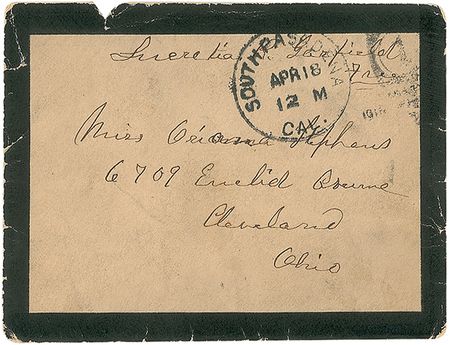 Lucretia R. Garfield
Free
SOUTH PASADENA
APR 18
12 M
CAL.
191
Miss Stephens
6709 Euclid Avenue
Cleveland
Ohio